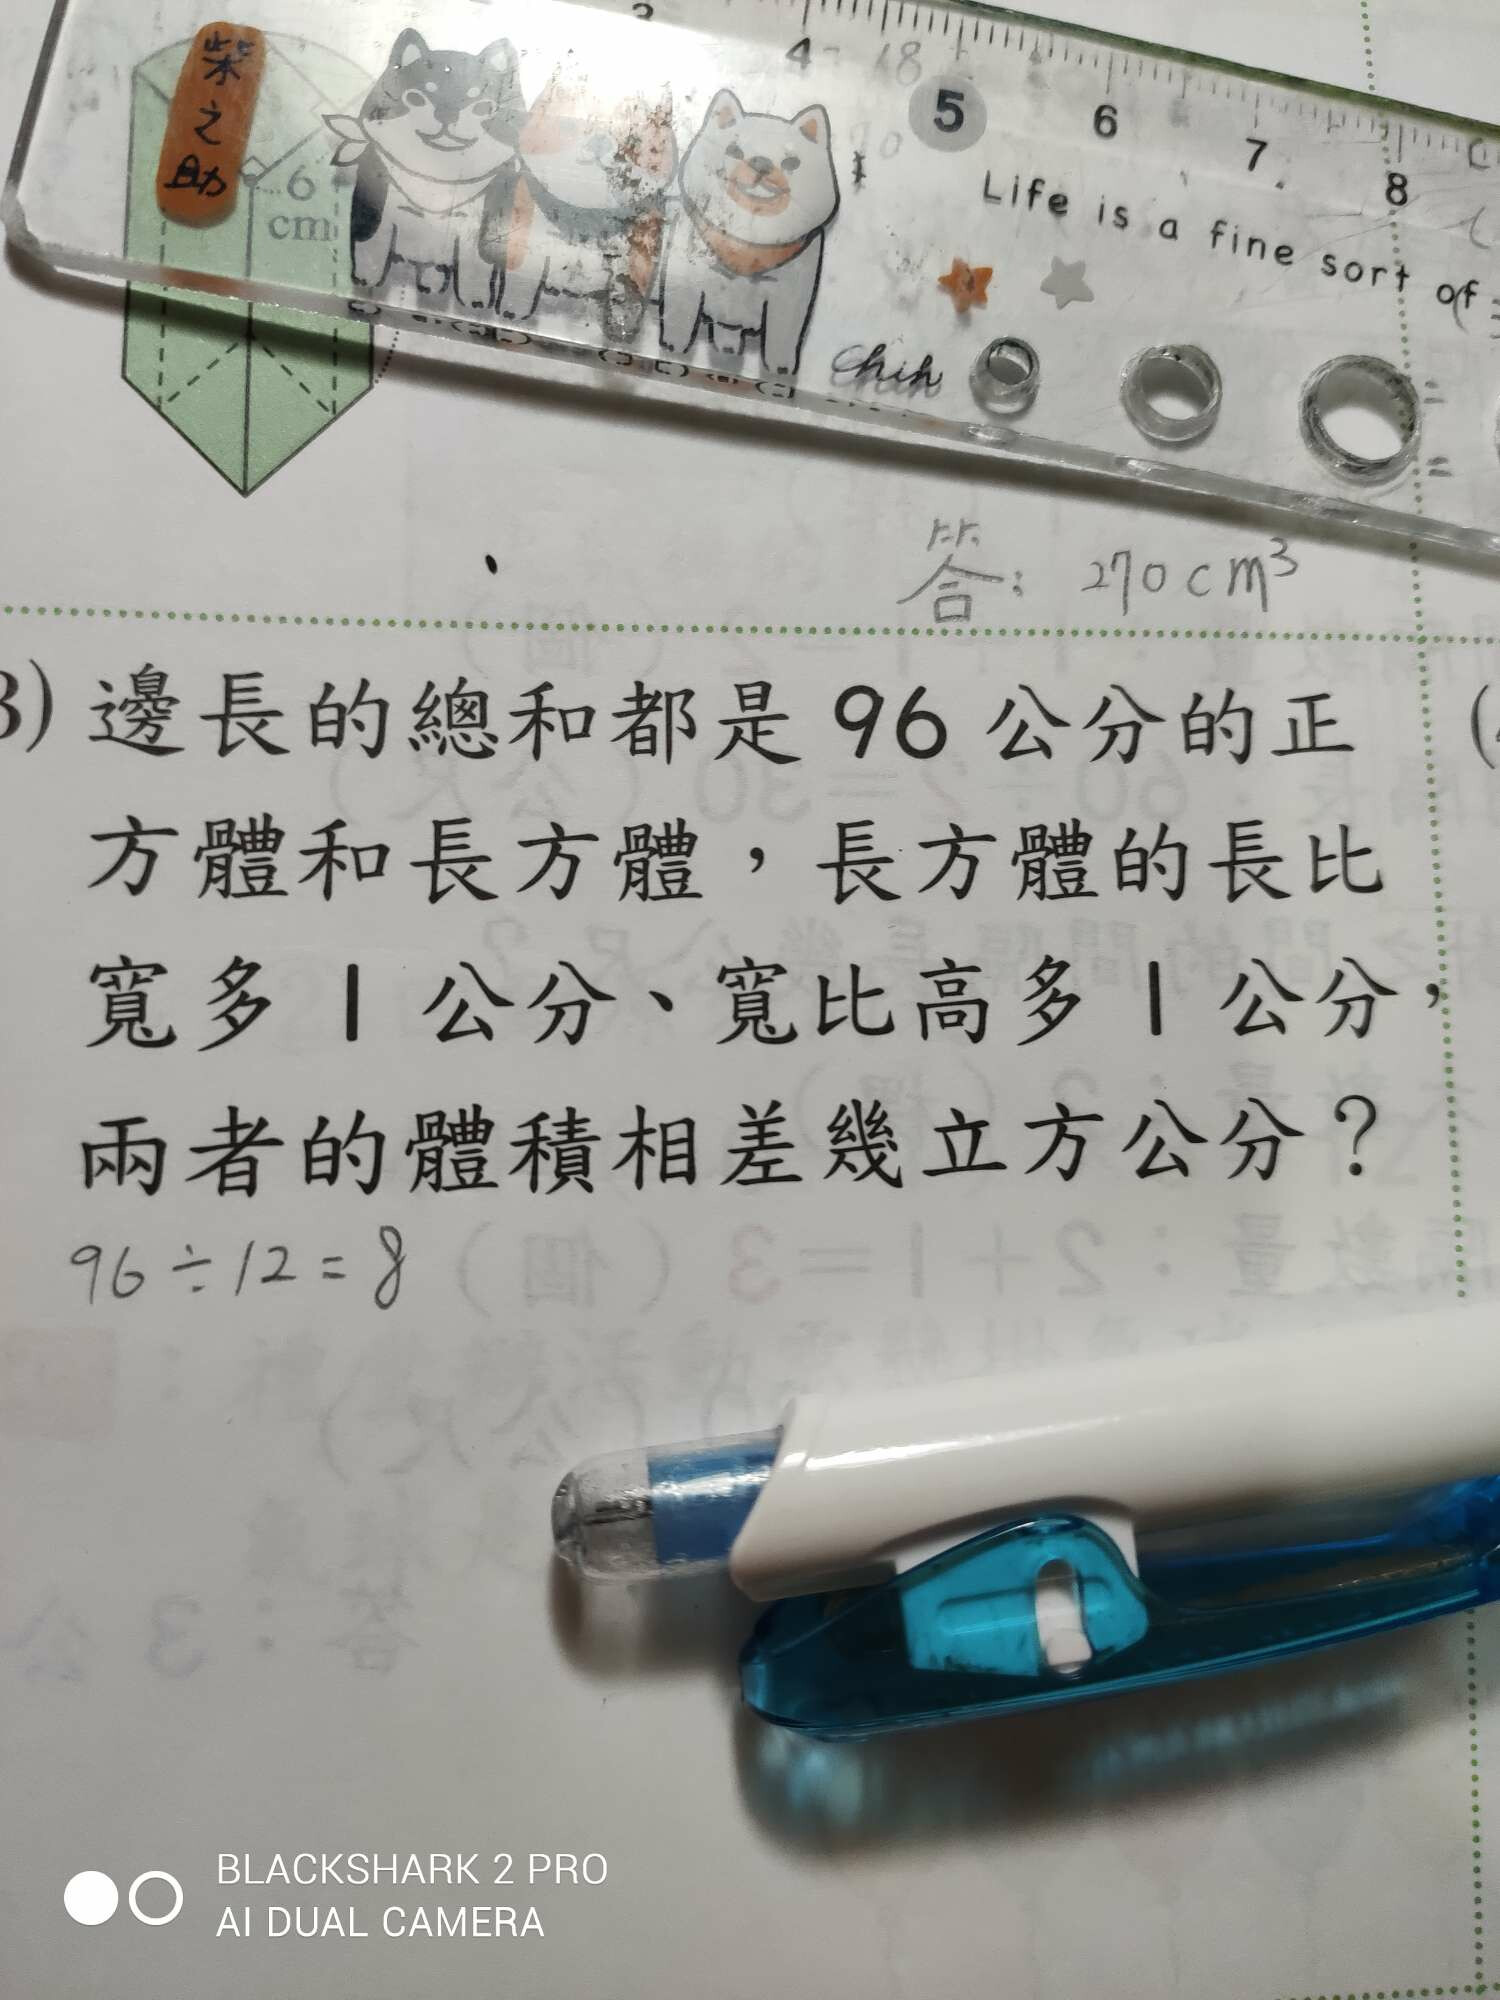 3
4
5
6
7
8
柴之助
6
cm
Life is a fine sort of
Chih
答：270cm³
3) 邊長的總和都是 96 公分的正
方體和長方體，長方體的長比
寬多 1 公分、寬比高多 1 公分，
兩者的體積相差幾立方公分？
96÷12=8
BLACKSHARK 2 PRO
AI DUAL CAMERA